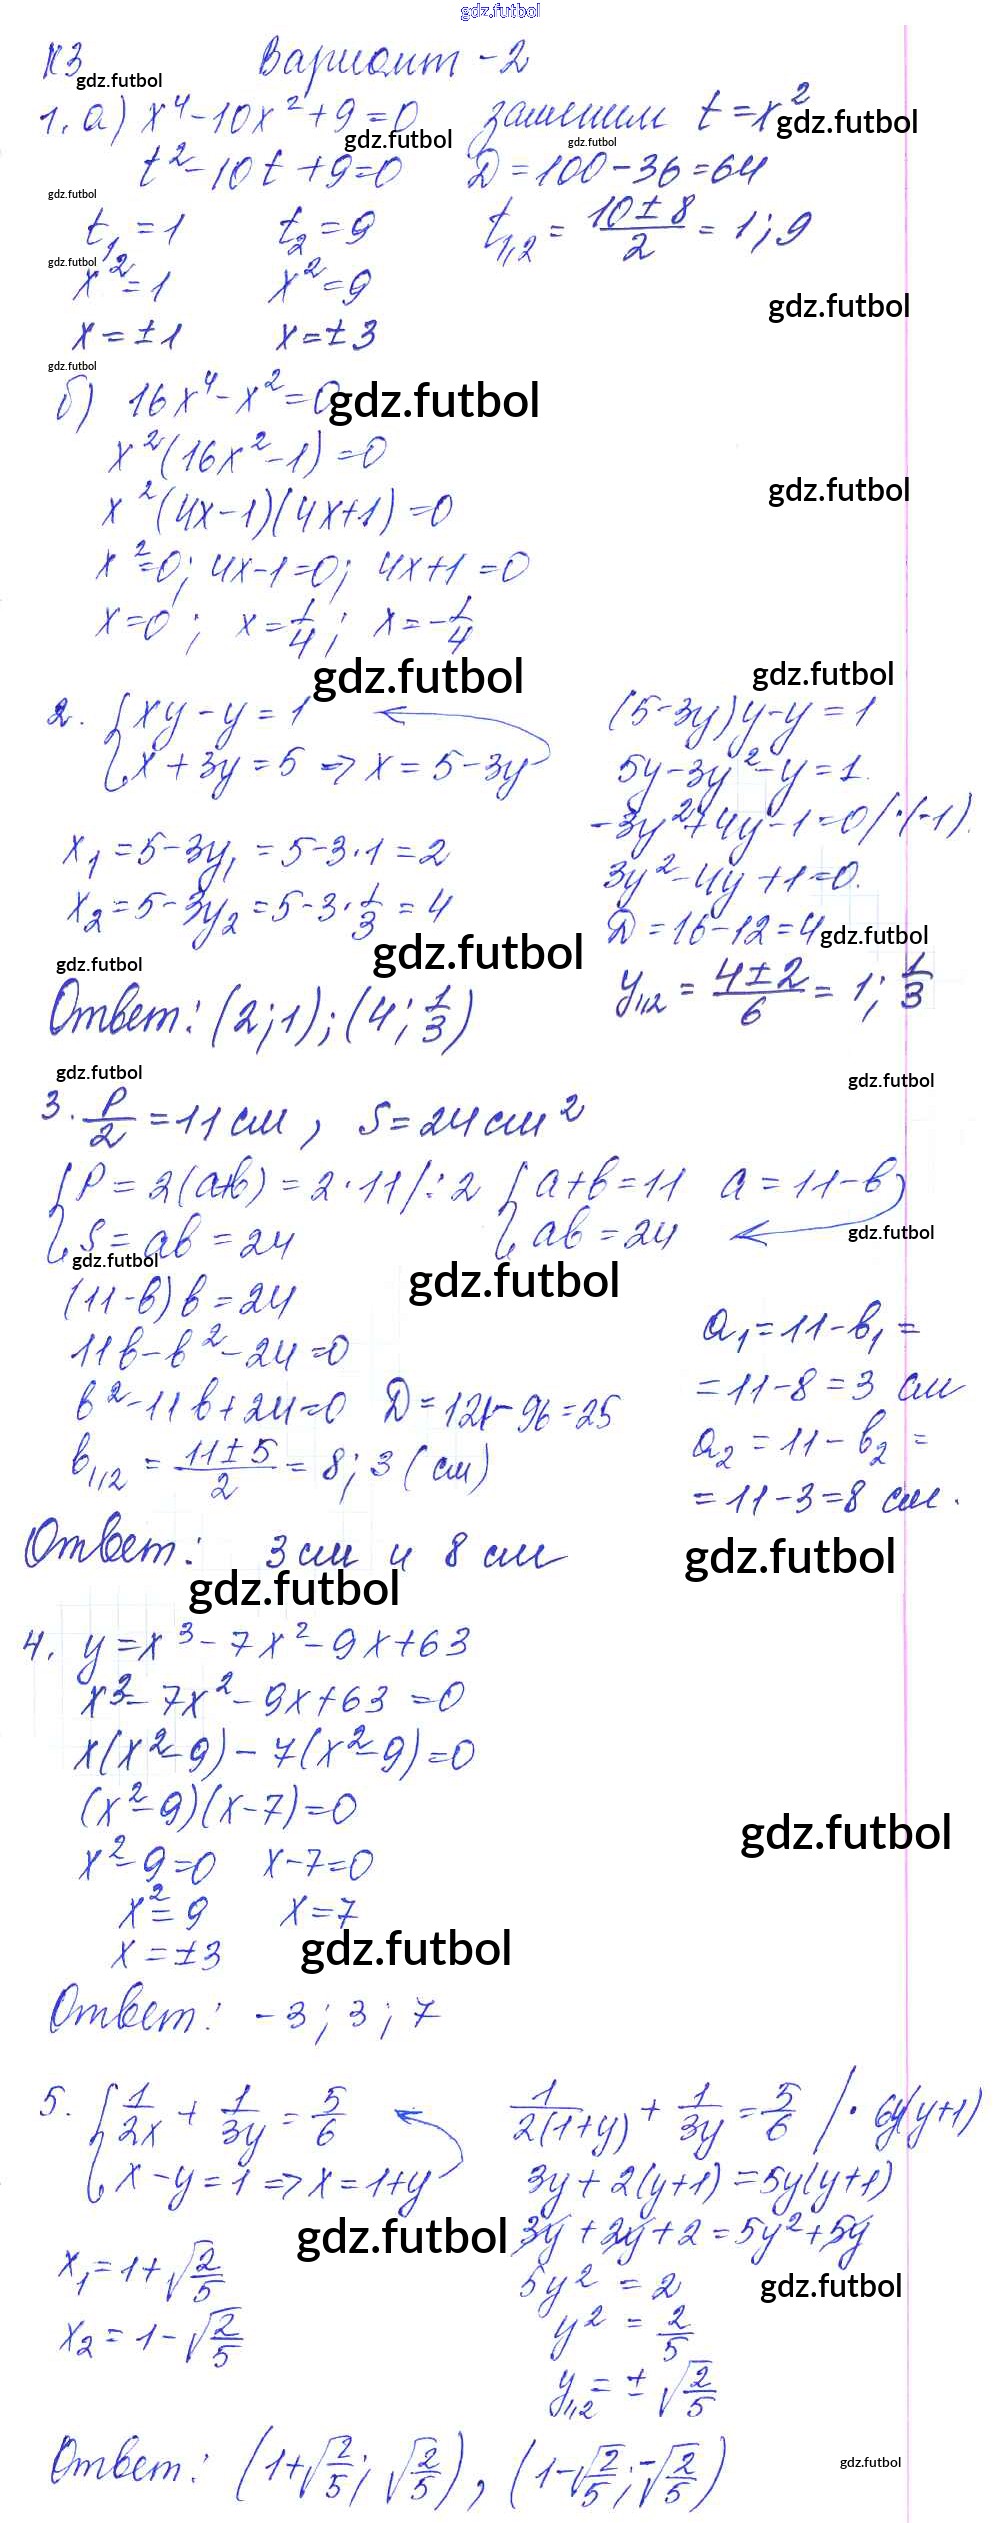 gdz.futbol
К3 Вариант - 2
gdz.futbol
1. а) x⁴ - 10x² + 9 = 0 заменим t = x²
gdz.futbol gdz.futbol gdz.futbol
t² - 10t + 9 = 0 D = 100 - 36 = 64
gdz.futbol
t₁ = 1 t₂ = 9 t₁,₂ = (10 ± 8)/2 = 1; 9
gdz.futbol
x² = 1 x² = 9
gdz.futbol
x = ±1 x = ±3
gdz.futbol
б) 16x⁴ - x² = 0
gdz.futbol
x²(16x² - 1) = 0
gdz.futbol
x²(4x - 1)(4x + 1) = 0
x² = 0; 4x - 1 = 0; 4x + 1 = 0
x = 0; x = 1/4; x = -1/4
gdz.futbol gdz.futbol
2. { xy - y = 1 (5 - 3y)y - y = 1
x + 3y = 5 => x = 5 - 3y 5y - 3y² - y = 1.
-3y² + 4y - 1 = 0 / · (-1).
x₁ = 5 - 3y₁ = 5 - 3 · 1 = 2 3y² - 4y + 1 = 0.
x₂ = 5 - 3y₂ = 5 - 3 · 1/3 = 4 D = 16 - 12 = 4
gdz.futbol gdz.futbol gdz.futbol
y₁,₂ = (4 ± 2)/6 = 1; 1/3
Ответ: (2; 1); (4; 1/3)
gdz.futbol gdz.futbol
3. P/2 = 11 см, S = 24 см²
{ P = 2(a+b) = 2 · 11 / : 2 { a + b = 11 a = 11 - b
S = ab = 24 ab = 24
gdz.futbol gdz.futbol gdz.futbol
(11 - b) b = 24
11b - b² - 24 = 0 a₁ = 11 - b₁ =
b² - 11b + 24 = 0 D = 121 - 96 = 25 = 11 - 8 = 3 см
b₁,₂ = (11 ± 5)/2 = 8; 3 (см) a₂ = 11 - b₂ =
= 11 - 3 = 8 см.
Ответ: 3 см и 8 см
gdz.futbol gdz.futbol
4. y = x³ - 7x² - 9x + 63
x³ - 7x² - 9x + 63 = 0
x(x² - 9) - 7(x² - 9) = 0
(x² - 9)(x - 7) = 0
gdz.futbol
x² - 9 = 0 x - 7 = 0
x² = 9 x = 7
x = ±3
gdz.futbol
Ответ: -3; 3; 7
5. { 1/2x + 1/3y = 5/6 1/2(1+y) + 1/3y = 5/6 / · 6y(y+1)
x - y = 1 => x = 1+y 3y + 2(y+1) = 5y(y+1)
gdz.futbol
3y + 2y + 2 = 5y² + 5y
x₁ = 1 + √2/5 5y² = 2
gdz.futbol
x₂ = 1 - √2/5 y² = 2/5
y₁,₂ = ± √2/5
Ответ: (1+√2/5; √2/5), (1-√2/5; -√2/5)
gdz.futbol